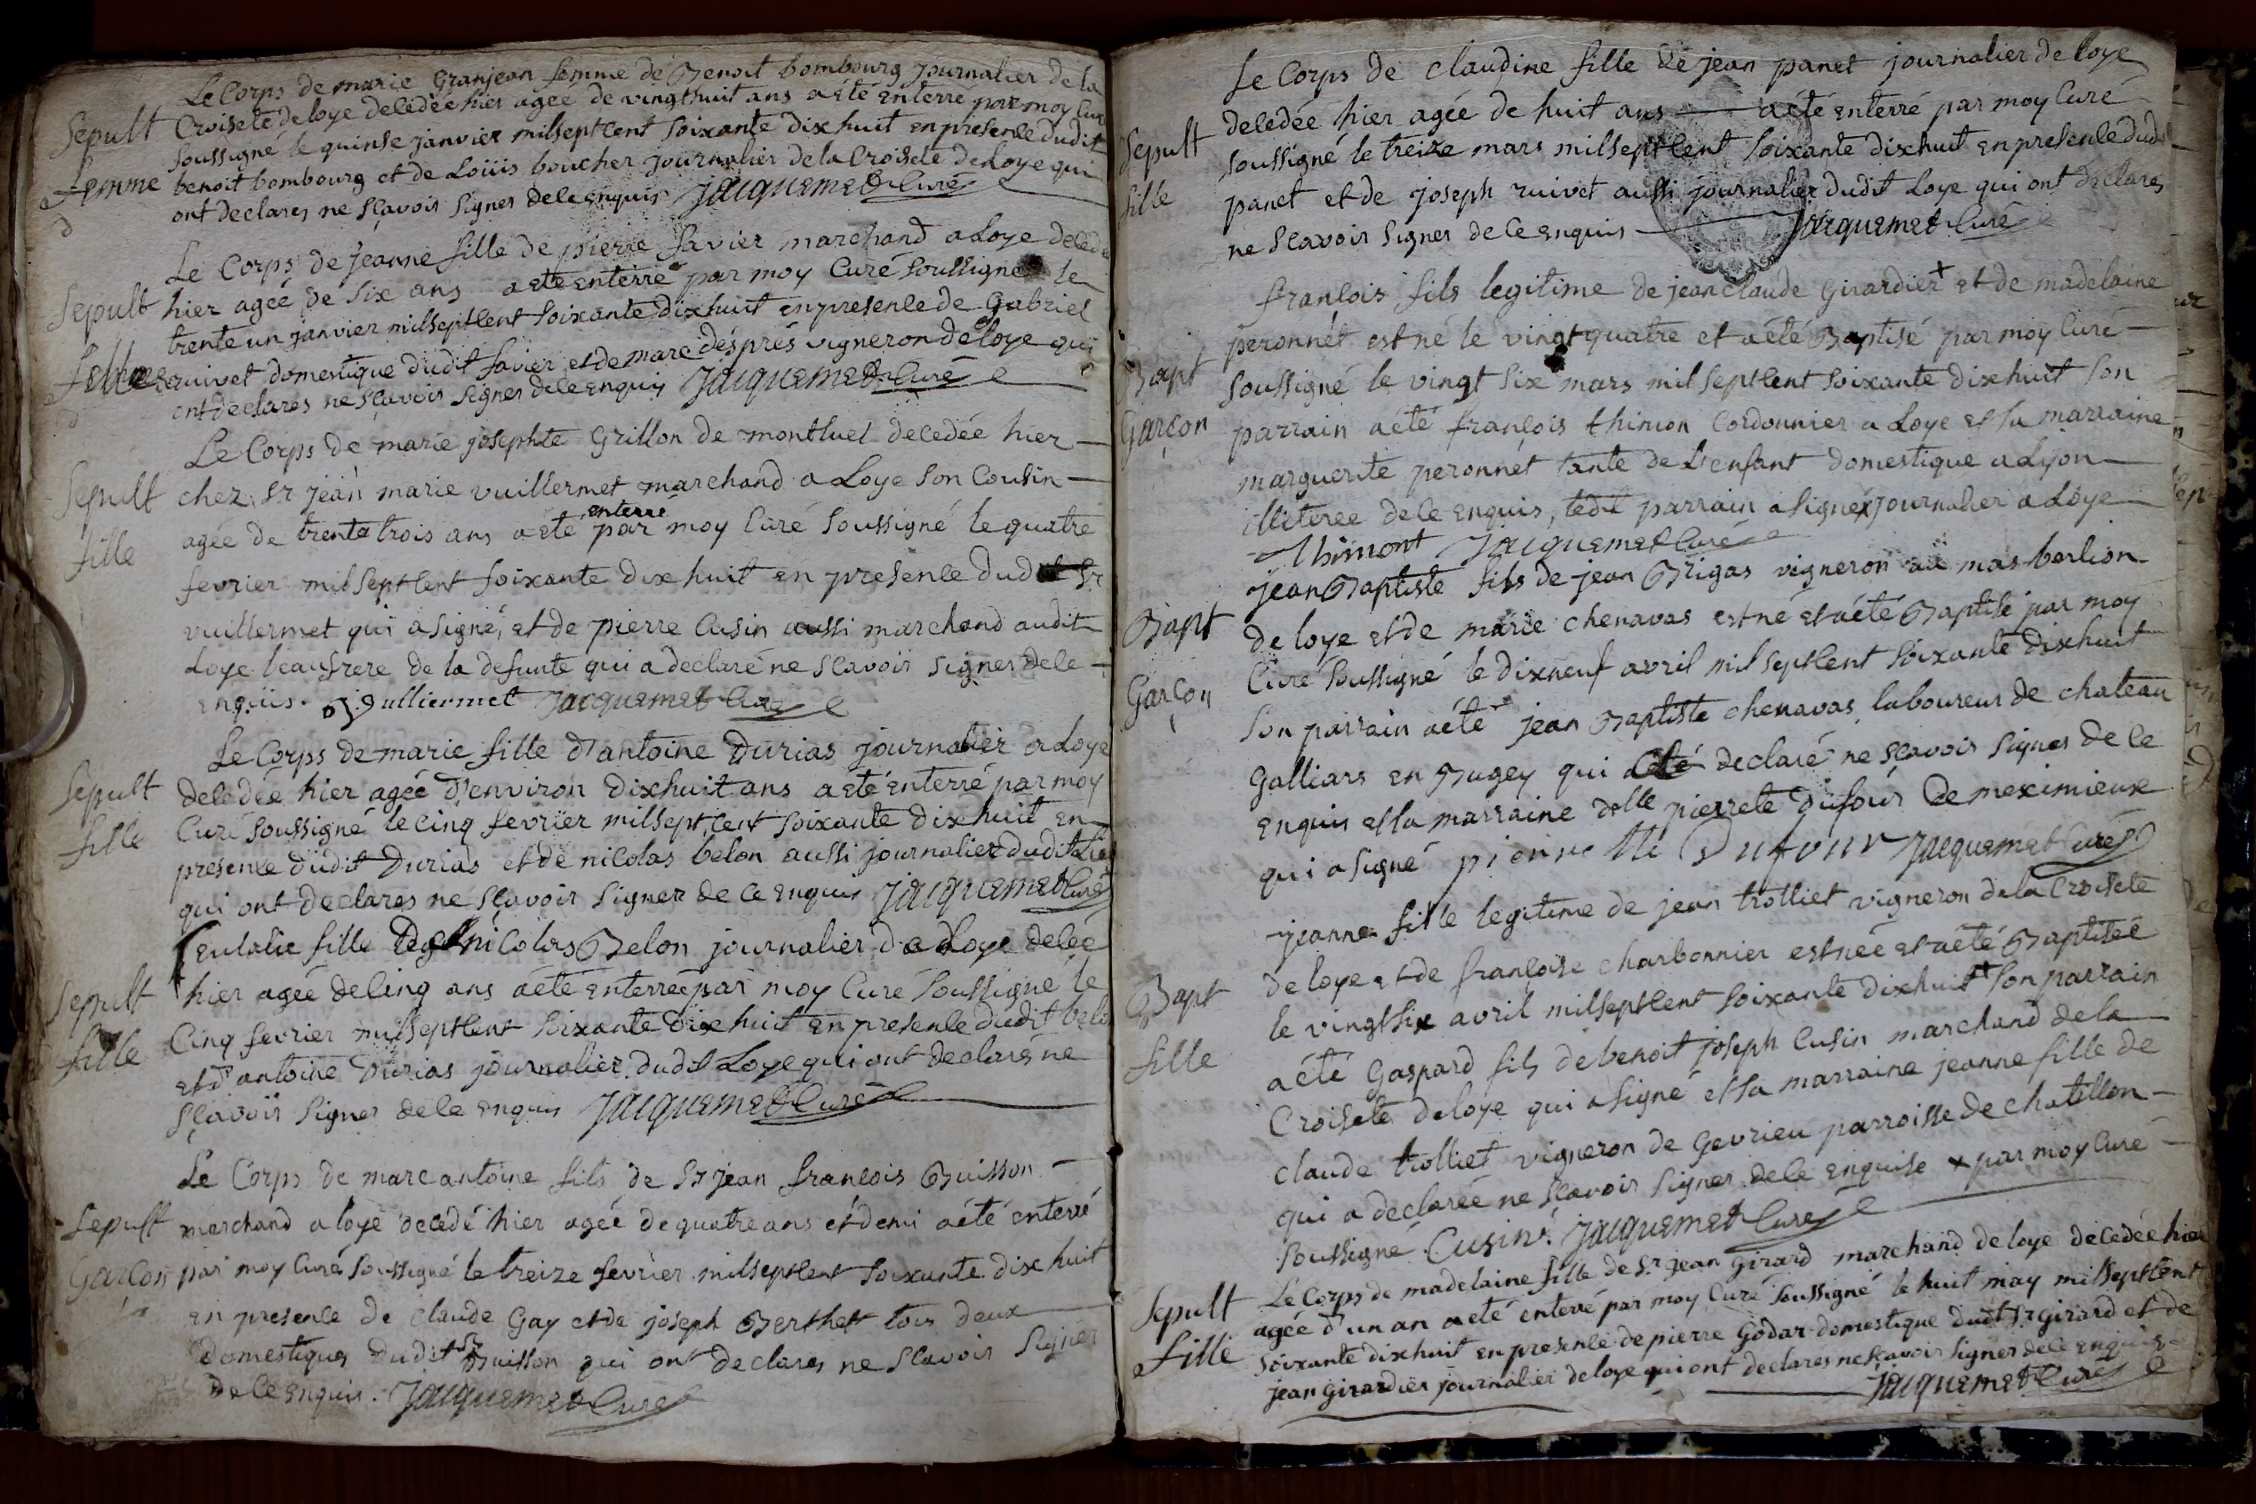 Le Corps de marie Granjean femme de Benoit bombourg journalier de la
Sepult
Croisete de loye decedée hier ageé de vingthuit ans a eté enterré par moy Curé
soussigné le quinse janvier milseptcent soixante dixhuit en presence dudit
femme
benoit bombourg et de Loüis boucher journalier de la Croisete de Loye qui
ont declares ne sçavoir signer de ce enquis Jacquemet Curé
Le Corps de jeanne fille de pierre favier marchand a Loye decedé
Sepult
hier ageé de six ans a eté enterré par moy Curé soussigné le
trente un janvier milseptcent soixante dixhuit en presence de Gabriel
fille
ruivet domestique dudit favier et de marc després vigneron de loye qui
ont declares ne sçavoir signer de ce enquis Jacquemet Curé
Le Corps de marie josephte Grillon de montluel decedée hier
Sepult
chez Sr jean marie vuillermet marchand a Loye son Cousin
agée de trente trois ans a eté enterré par moy Curé soussigné le quatre
fille
fevrier milseptcent soixante dix huit en presence dudit Sr
vuillermet qui a signé, et de pierre Cusin aussi marchand audit
Loye beaufrere de la defunte qui a declaré ne sçavoir signer de ce
enquis. J. Vulliermet Jacquemet Curé
Le Corps de marie fille d'antoine Durias journalier a Loye
Sepult
decedée hier agée d'environ dixhuit ans a eté enterré par moy
Curé soussigné le cinq fevrier milseptcent soixante dixhuit en
fille
presence dudit Durias et de nicolas belon aussi journalier dudit
qui ont declares ne sçavoir signer de ce enquis Jacquemet Curé
Eulalie fille de nicolas Belon journalier de Loye decée
Sepult
hier agée de cinq ans a eté enterrée par moy Curé soussigné le
Cinq fevrier milseptcent soixante dixhuit en presence dudit belon
fille
et d'antoine Durias journalier dudit Loye qui ont declaré ne
sçavoir signer de ce enquis Jacquemet Curé
Le Corps de marc antoine fils de Sr jean françois Buisson
Sepult
marchand a loye decedé hier agée de quatre ans et demi a eté enterré
Garçon
par moy Curé soussigné le treize fevrier milseptcent soixante dixhuit
en presence de Claude Gay et de joseph Berthet tous deux
domestiques dudit Sr Buisson qui ont declares ne sçavoir signer
de ce enquis. Jacquemet Curé
Le Corps de claudine fille de jean panet journalier de loye
decedée hier agée de huit ans a eté enterré par moy Curé
Sepult
soussigné le treize mars milseptcent soixante dixhuit en presence dudit
fille
panet et de joseph ruivet aussi journalier dudit Loye qui ont declares
ne sçavoir signer de ce enquis Jacquemet Curé
françois fils legitime de jean claude Girardier + et de madelaine
peronnet est né le vingtquatre et a eté Baptisé par moy Curé
Bapt
soussigné le vingt six mars milseptcent soixante dixhuit son
Garçon
parrain a eté françois thimon Cordonnier a Loye et sa marraine
marguerite peronnet tante de l'enfant domestique a Lyon
illiteree de ce enquis, ledit parrain a signé x journalier a Loye
Thimont Jacquemet Curé
jean Baptiste fils de jean Brigas vigneron au mas barlion
Bapt
de loye et de marie chenavas est né et a eté Baptisé par moy
Curé soussigné le dixneuf avril milseptcent soixante dixhuit
Garçon
son parrain a eté jean Baptiste chenavas laboureur de chateau
Galliars en Bugey qui a declaré ne sçavoir signer de ce
enquis et la marraine dlle pierrete Dufour de meximieux
qui a signé pierrette Dufour Jacquemet Curé
jeanne fille legitime de jean trolliet vigneron de la Croisete
de loye et de françoise charbonnier est née et a eté Baptisée
Bapt
le vingtsix avril milseptcent soixante dixhuit + son parrain
fille
a eté Gaspard fils de benoit joseph Cusin marchand de la
Croisete de loye qui a signé et sa marraine jeanne fille de
claude trolliet vigneron de Gevrieu parroisse de chatillon
qui a declareé ne sçavoir signer de ce enquise + par moy Curé
soussigné. Cusin. Jacquemet Curé
Le Corps de madelaine fille de Sr jean Girard marchand de loye decedée hier
Sepult
agée d'un an a eté enterré par moy Curé soussigné le huit may milseptcent
fille
soixante dixhuit en presence de pierre Godar domestique dudt Sr Girard et de
jean Girardier journalier de loye qui ont declares ne sçavoir signer de ce enquis
Jacquemet Curé